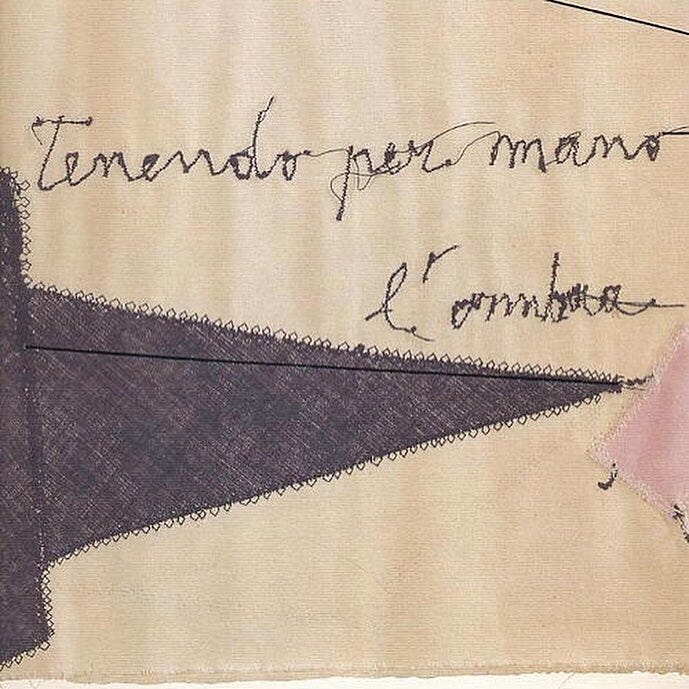 Tenendo per mano
l'ombra